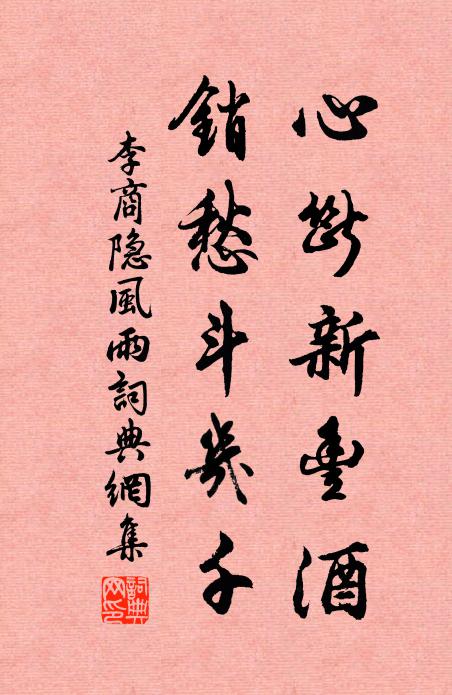 心斷新豐酒
銷愁斗幾千
李商隐風雨詞典網集
詞典网印